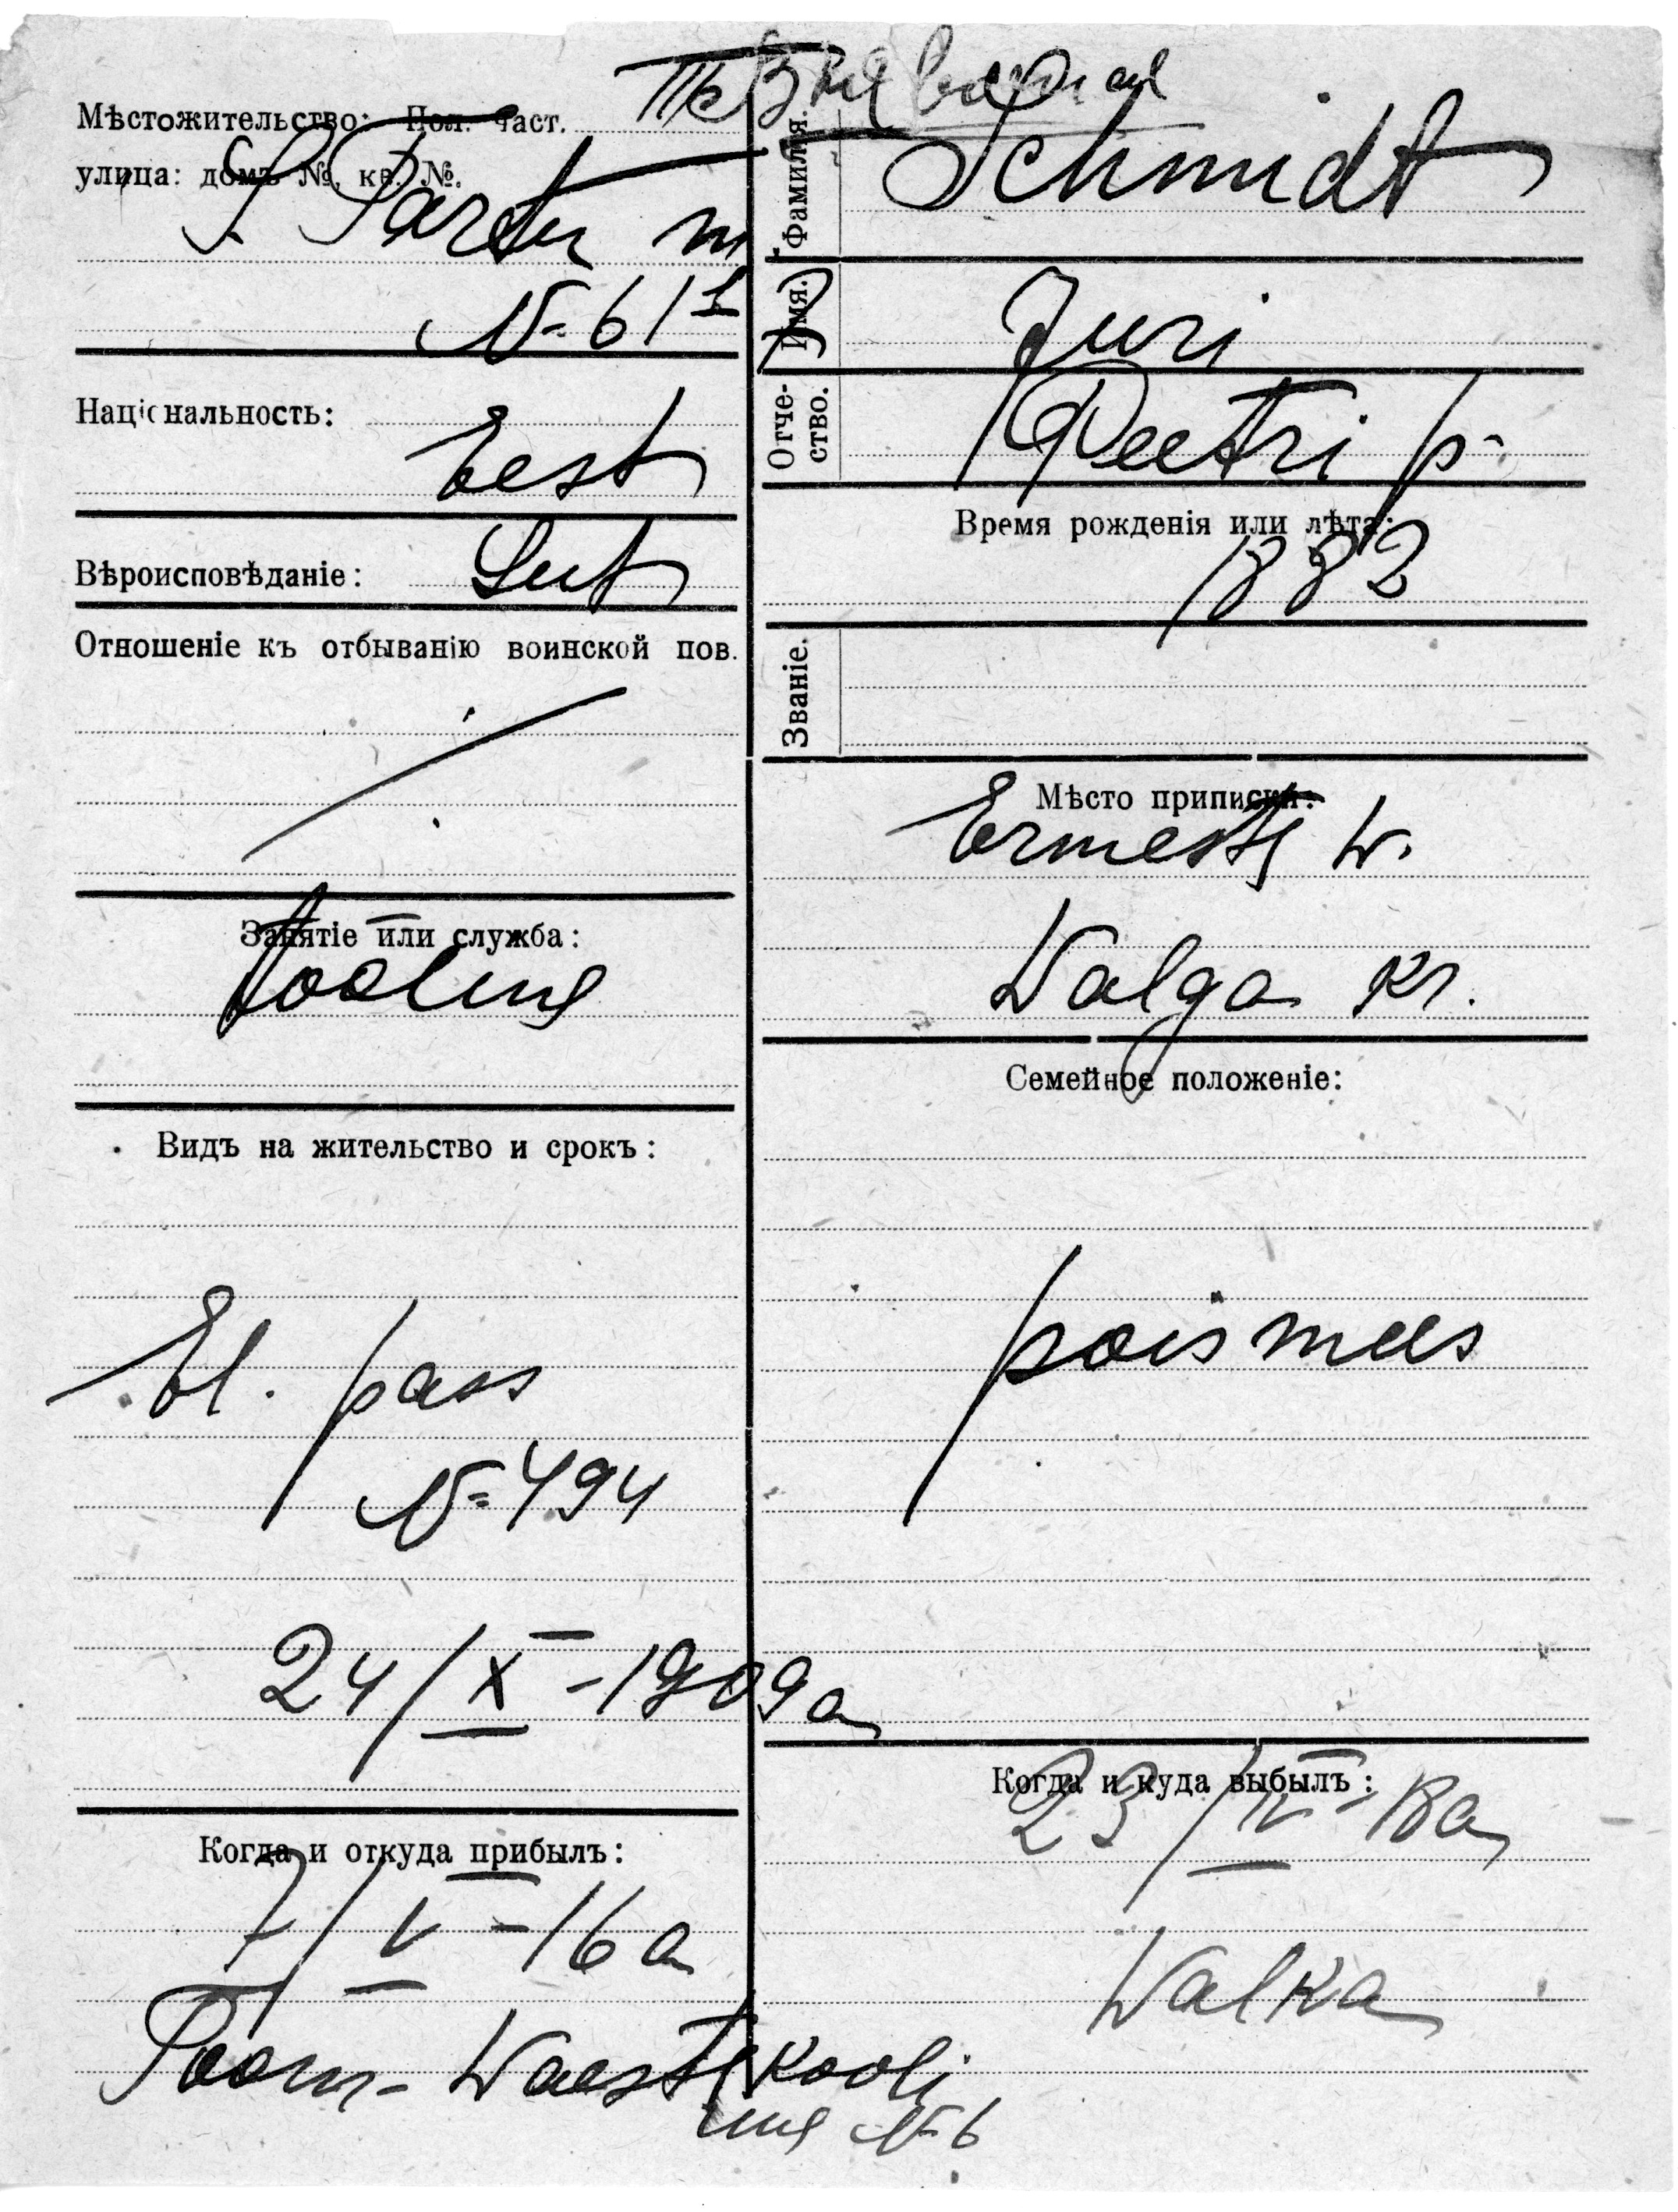 Мѣстожительство: Пол. част.
улица: домъ №, кв. №.
S. Partu m
№ 61 1
Націснальность:
Eest
Вѣроисповѣданіе:
Lut
Отношеніе къ отбыванію воинской пов.
Занятіе или служба:
tööline
Видъ на жительство и срокъ:
El. pass
№ 494
24/X-1909 a
Когда и откуда прибылъ:
7/V-16 a
Waestekooli
№ 6
Фамилія.
Schmidt
Имя.
Juri
Отче-
ство.
Peetri p.
Время рожденія или лѣта:
1882
Званіе.
Мѣсто приписки:
Ermest w.
Walga kr.
Семейное положеніе:
poismees
Когда и куда выбылъ:
23/IV-18 a
Walka